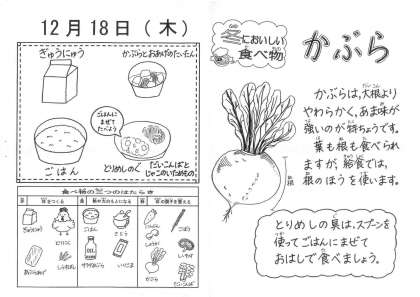 12月18日(木)
ぎゅうにゅう
かぶらとおあげのたいたん
ごはんに
まぜて
たべよう
ごはん
とりめしのぐ
だいこんばと
じゃこのいためもの
食べ物の三つのはたらき
ぎゅうにゅう
とりにく
あぶらあげ
ごはん
さとう
しょうが
かぶら
ごぼう
にんじん
冬においしい
食べ物
かぶら
かぶらは、大根より
やわらかく、あま味が
強いのが特ちょうです。
葉も根も食べられ
ますが、給食では、
根のほうを使います。
とりめしの具は、スプーンを
使ってごはんにまぜて
おはしで食べましょう。